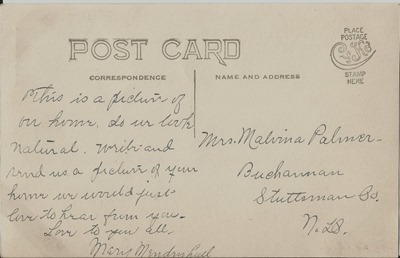 PLACE
POSTAGE
STAMP
HERE
POST CARD
CORRESPONDENCE
NAME AND ADDRESS
This is a picture of
our home. do we look
natural. write and
send us a picture of your
home we would just
love to hear from you.
Love to you all.
Mary Mendenhall
Mrs. Malvina Palmer
Buchannan
Stuttsman Co.
N.D.